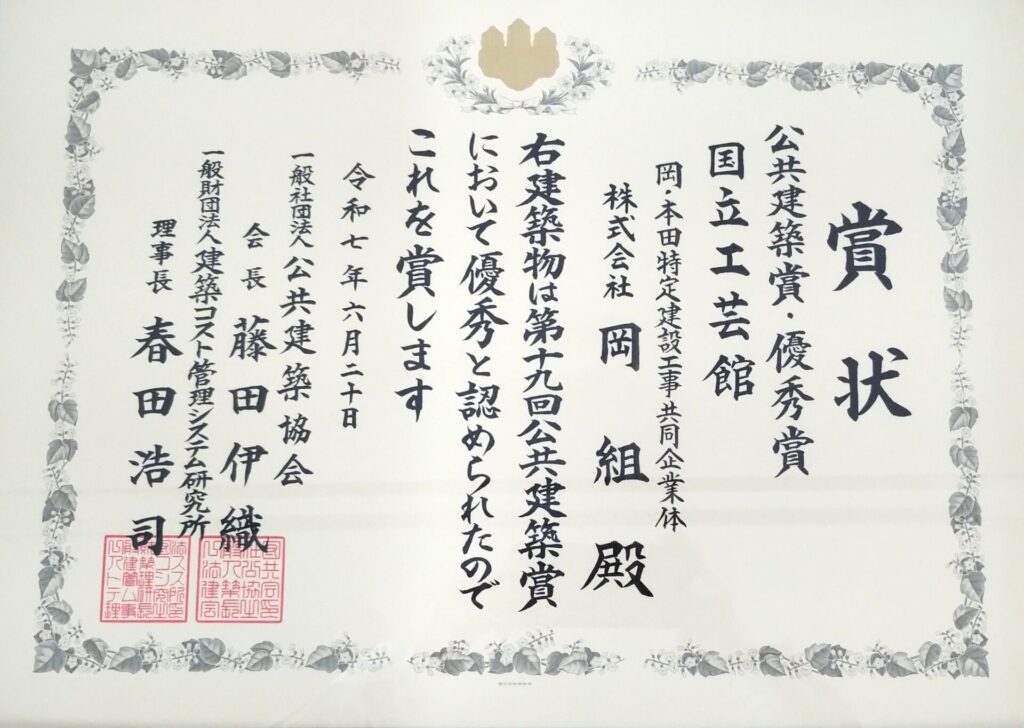 賞状
公共建築賞・優秀賞
国立工芸館
岡・本田特定建設工事共同企業体
株式会社 岡組殿
右建築物は第十九回公共建築賞
において優秀と認められたので
これを賞します
令和七年六月二十日
一般社団法人公共建築協会
会長 藤田伊織
一般財団法人建築コスト管理システム研究所
理事長 春田浩司